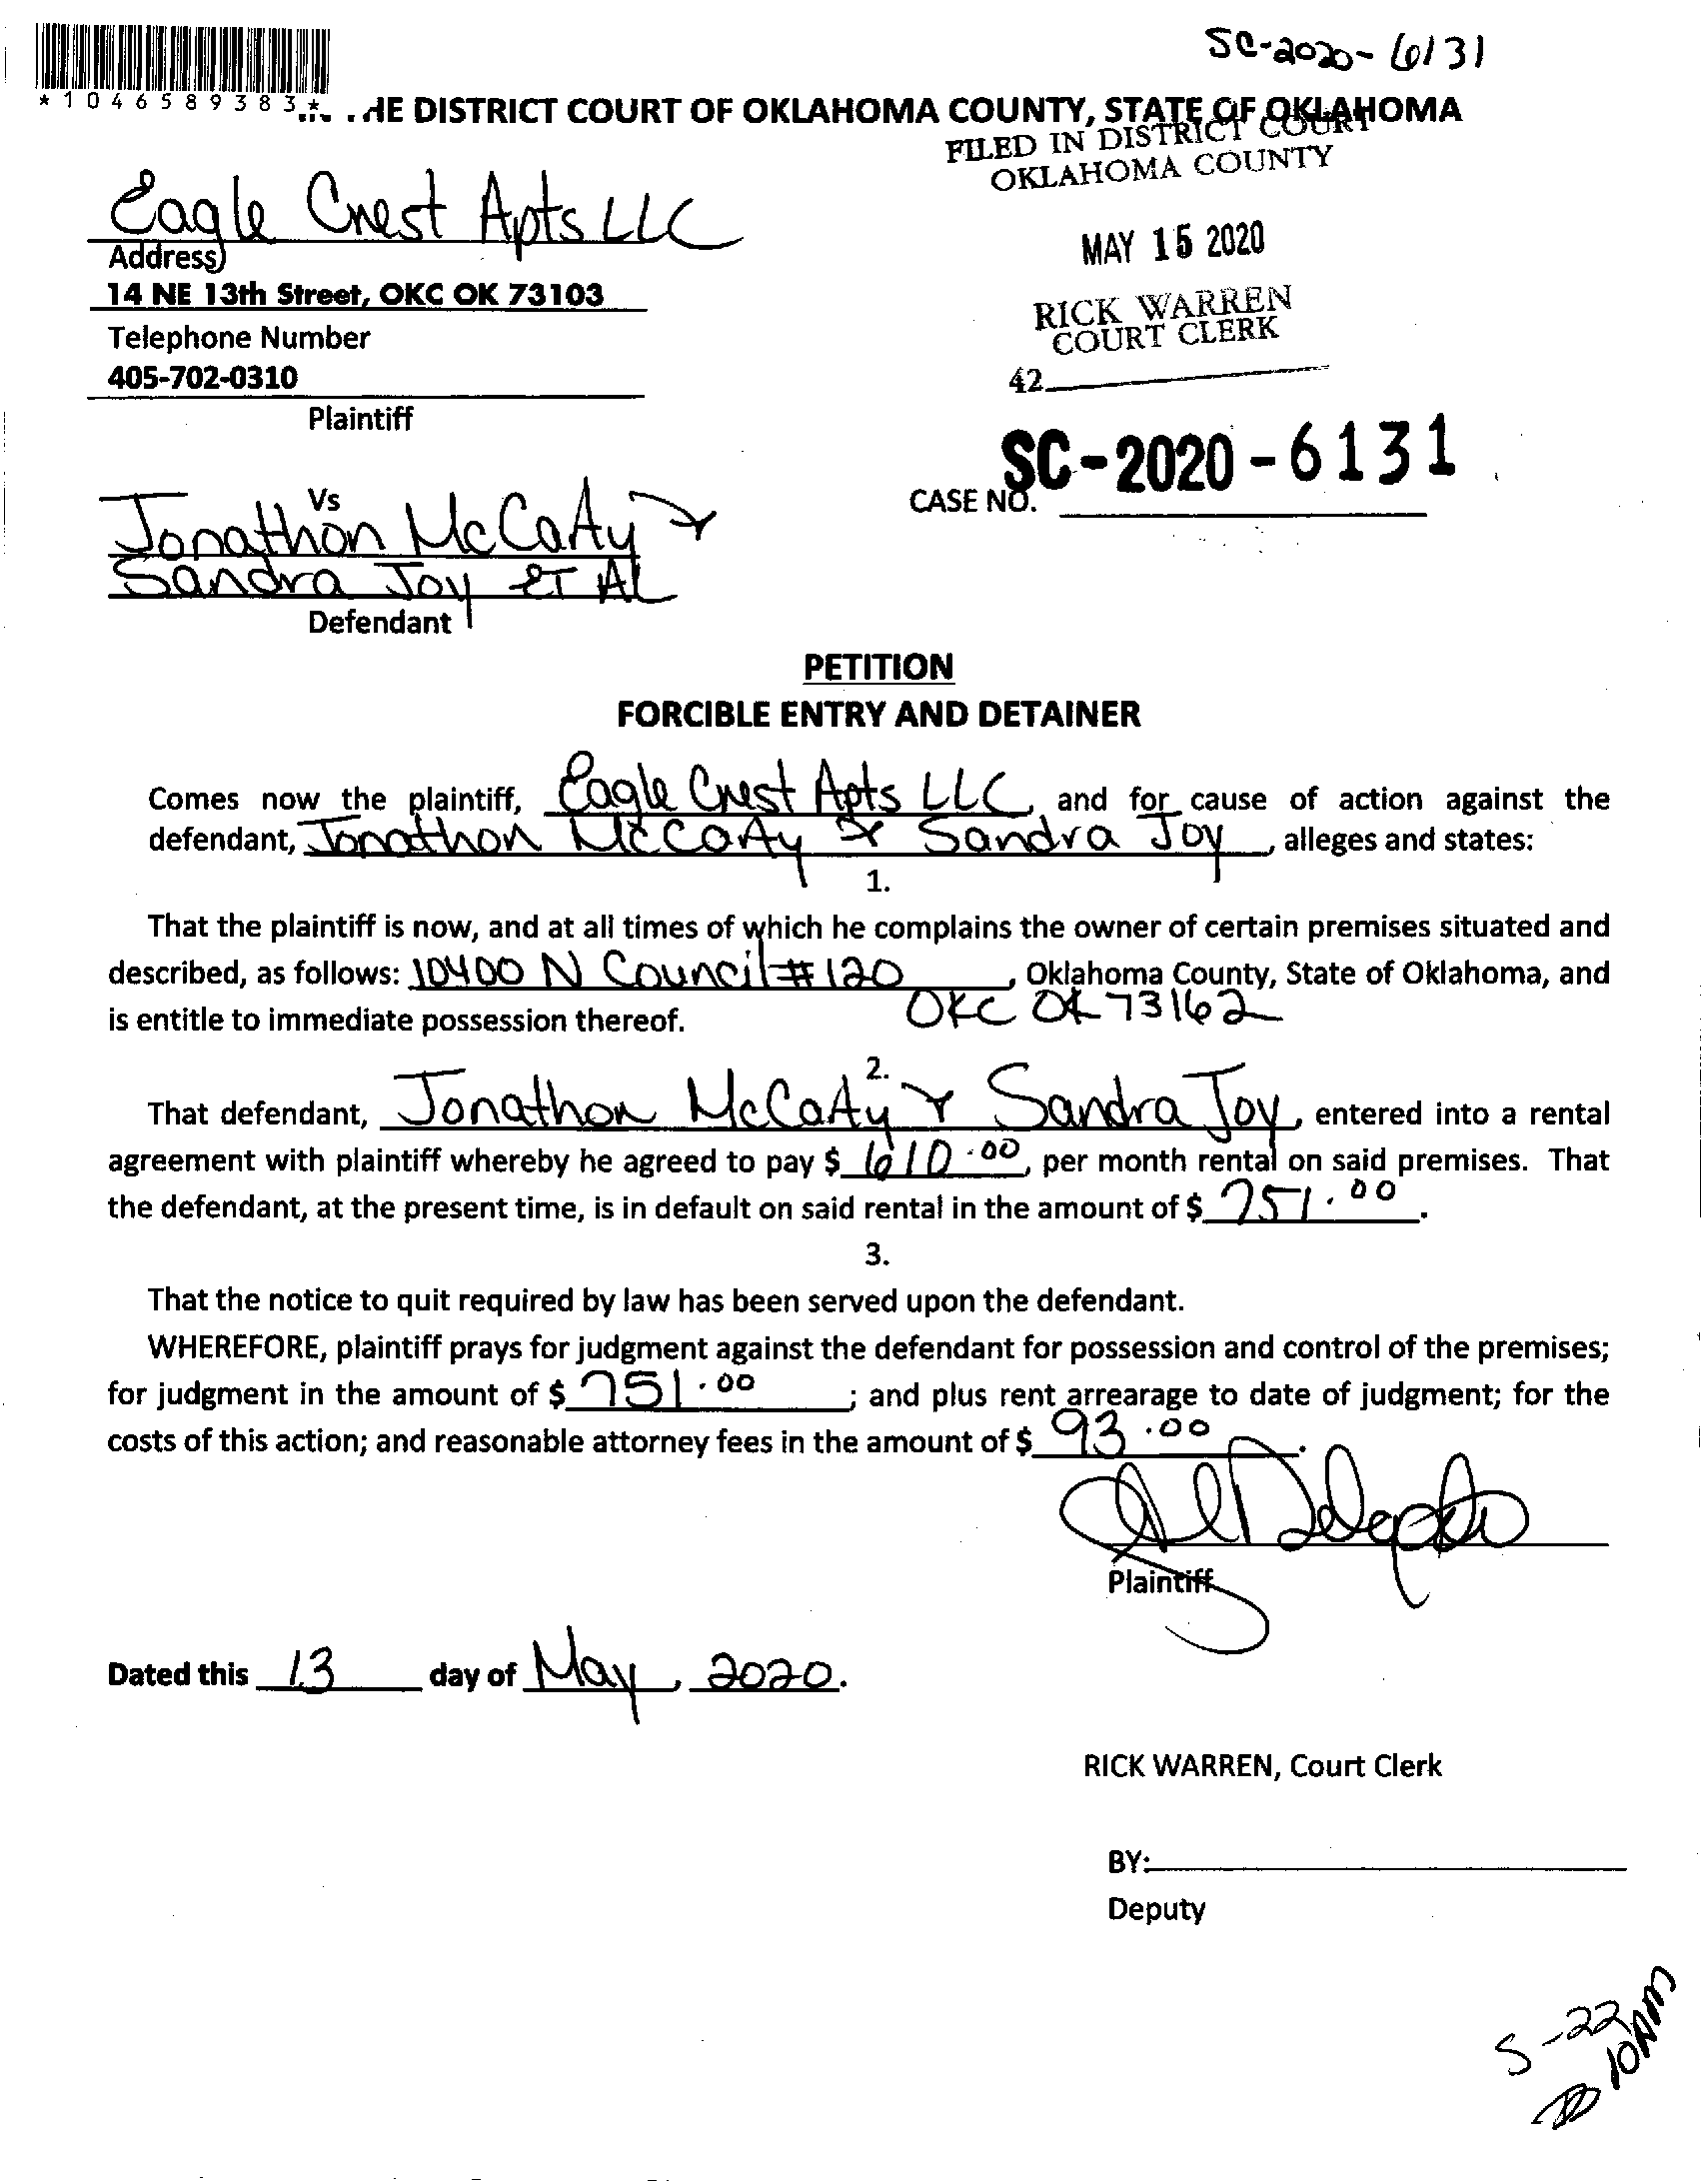 SC-2020-6131
*1046589383*
HE DISTRICT COURT OF OKLAHOMA COUNTY, STATE OF OKLAHOMA
FILED IN DISTRICT COURT
OKLAHOMA COUNTY
Eagle Crest Apts LLC
Address
MAY 15 2020
14 NE 13th Street, OKC OK 73103
RICK WARREN
COURT CLERK
Telephone Number
405-702-0310
42
Plaintiff
SC-2020-6131
CASE NO.
Vs
Jonathon McCarty &
Sandra Joy ET AL
Defendant
PETITION
FORCIBLE ENTRY AND DETAINER
Comes now the plaintiff, Eagle Crest Apts LLC, and for cause of action against the
defendant, Jonathon McCarty & Sandra Joy, alleges and states:
1.
That the plaintiff is now, and at all times of which he complains the owner of certain premises situated and
described, as follows: 10400 N Council #120, Oklahoma County, State of Oklahoma, and
OKC OK 73162
is entitle to immediate possession thereof.
2.
That defendant, Jonathon McCarty & Sandra Joy, entered into a rental
agreement with plaintiff whereby he agreed to pay $ 610.00, per month rental on said premises. That
the defendant, at the present time, is in default on said rental in the amount of $ 751.00.
3.
That the notice to quit required by law has been served upon the defendant.
WHEREFORE, plaintiff prays for judgment against the defendant for possession and control of the premises;
for judgment in the amount of $ 751.00; and plus rent arrearage to date of judgment; for the
costs of this action; and reasonable attorney fees in the amount of $ 93.00.
Plaintiff
Dated this 13 day of May, 2020.
RICK WARREN, Court Clerk
BY:
Deputy
5-22
10AM